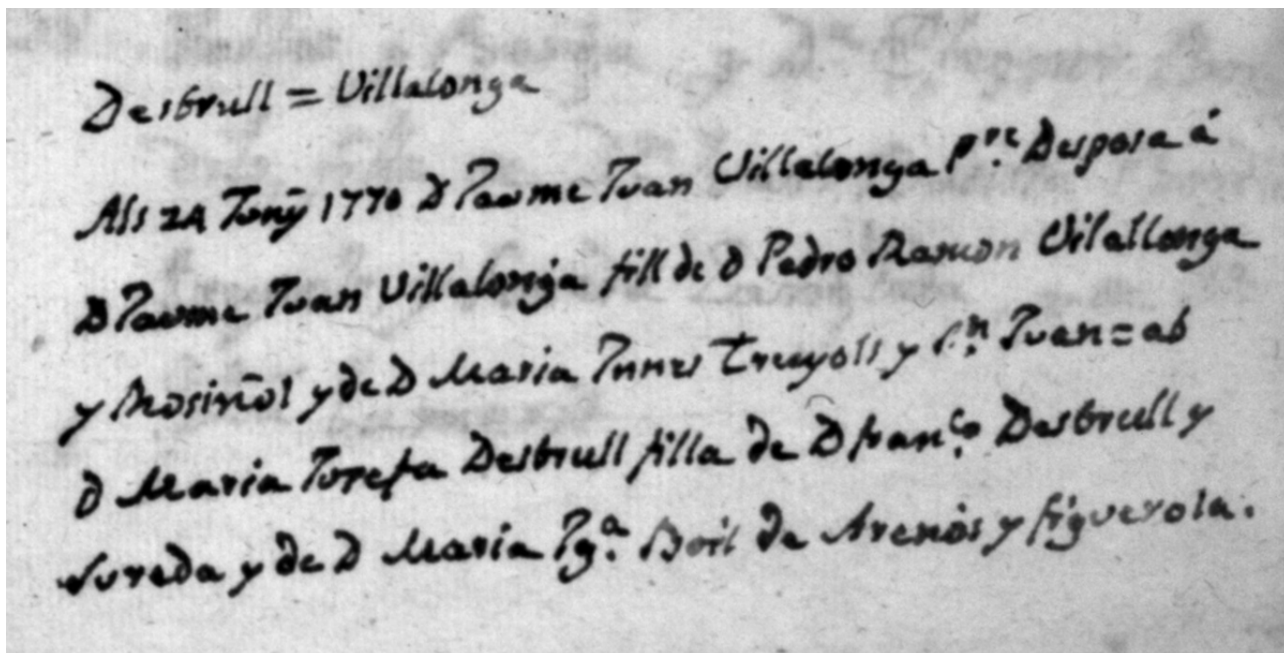 Desbrull = Villalonga
Als 24 Juñy 1770 D Jaume Juan Villalonga p.re Desposa á
D Jaume Juan Villalonga fill de D Pedro Ramon Vilallonga
y Rosiñol y de D Maria Innes Truyols y S.n Juan = ab
D Maria Josefa Desbrull filla de D fran.co Desbrull y
Sureda y de D Maria Ig.a Boil de Arenós y figuerola.